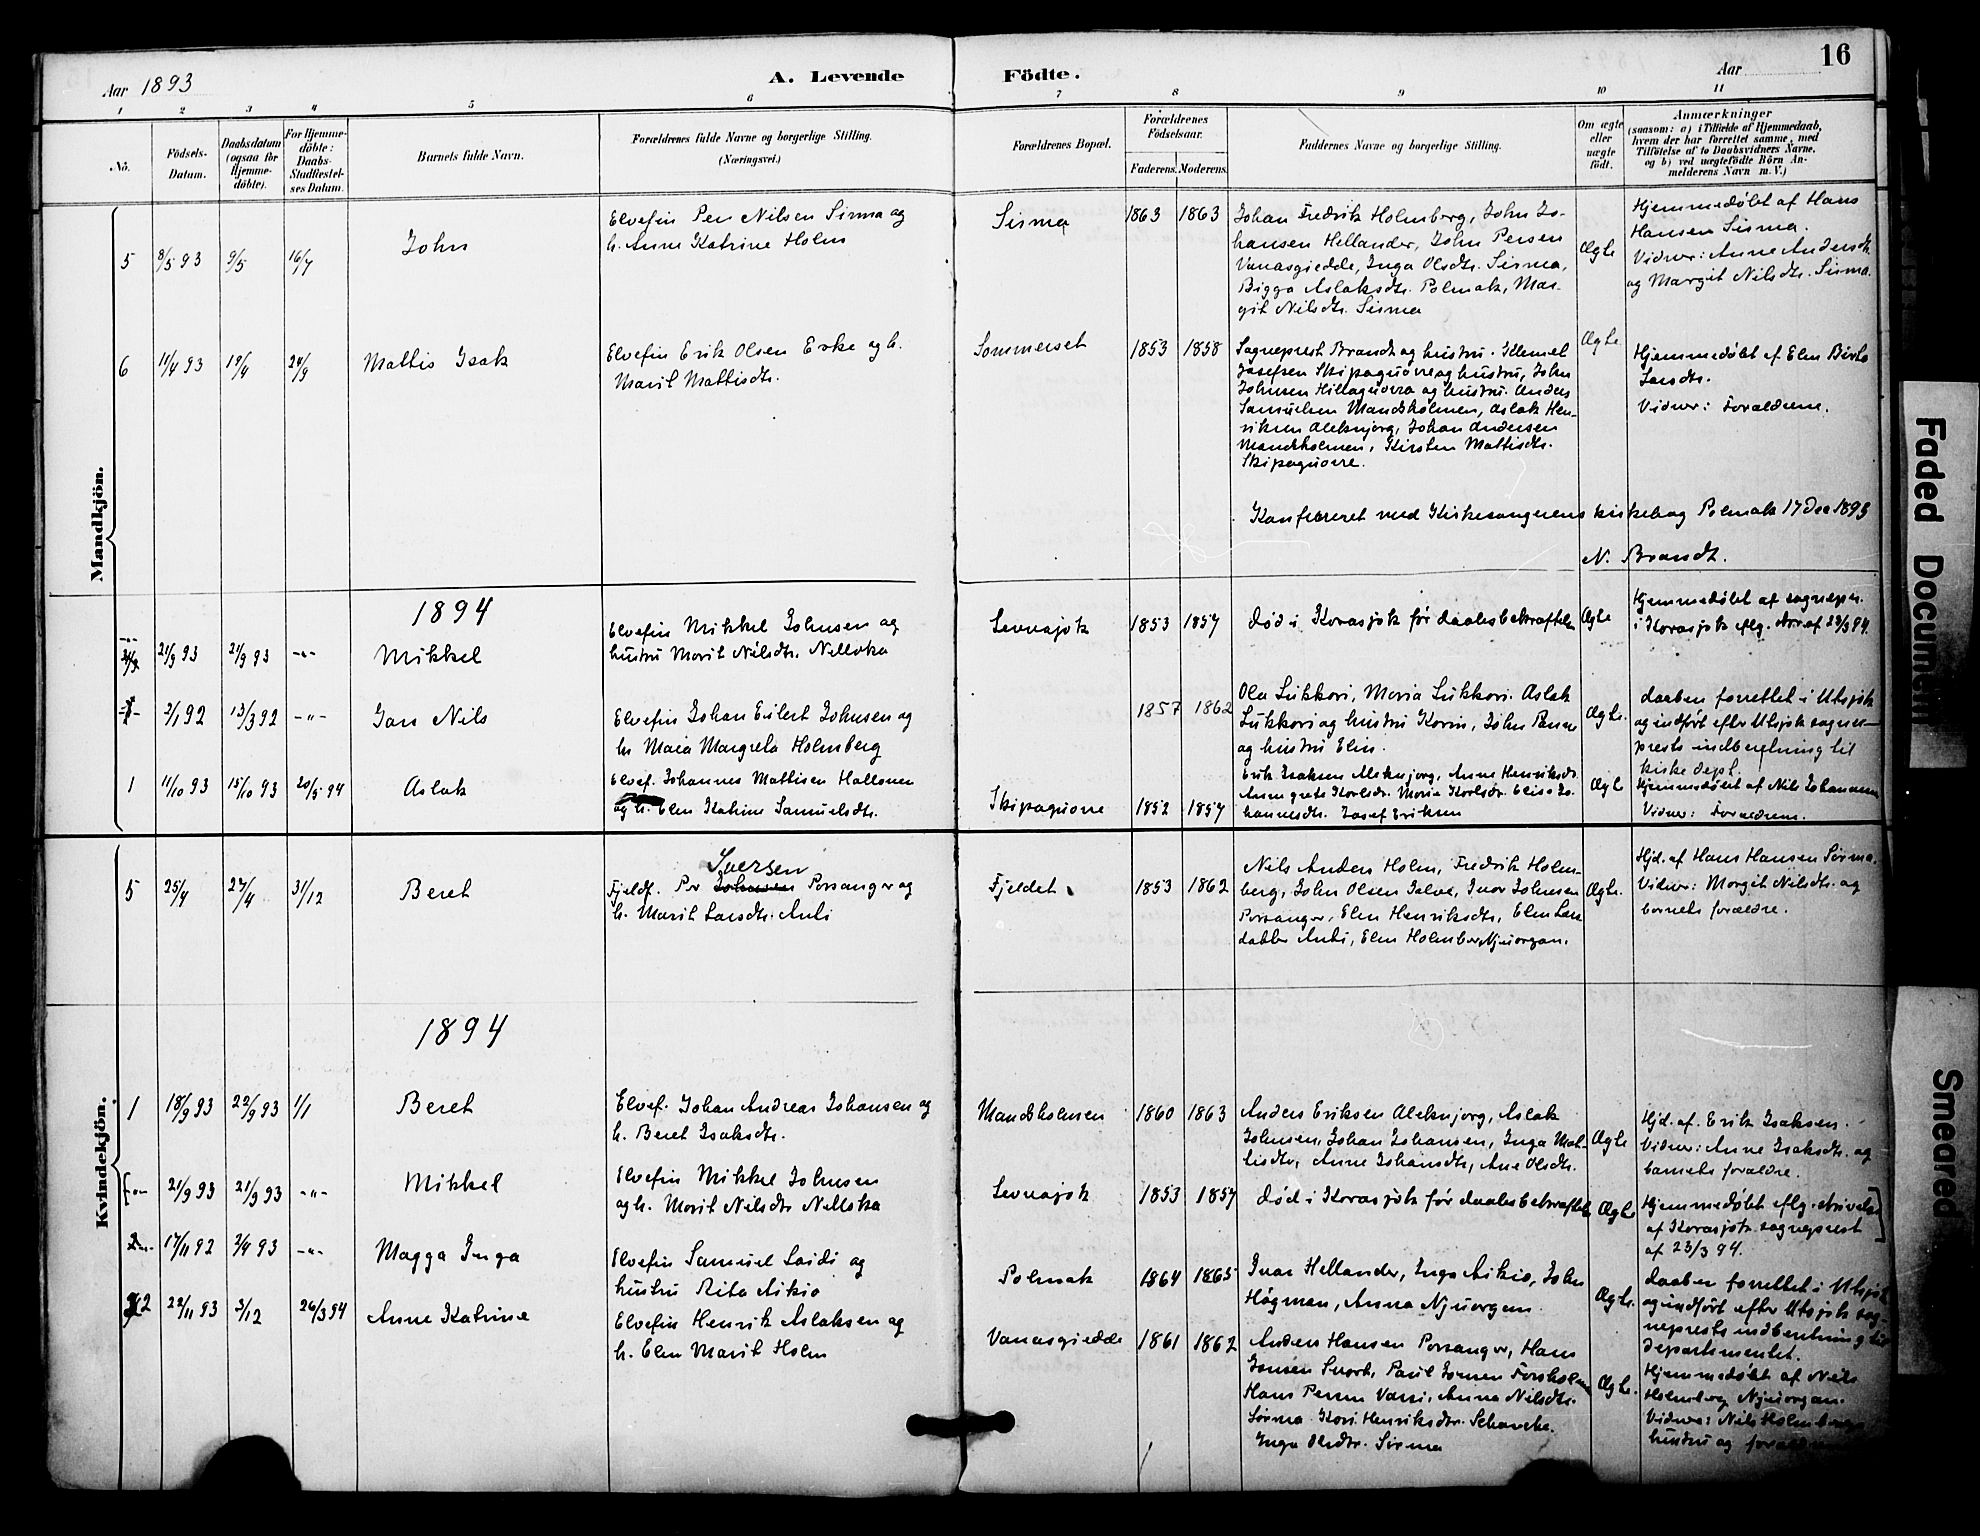 16
Aar 1893
A. Levende Födte.
Aar
1 2 3 4 5 6 7 8 9 10 11
No.
Födsels-
Datum.
Daabsdatum
(ogsaa for
Hjemme-
döbte).
For Hjemme-
döbte:
Daabs-
Stadfæstel-
ses Datum.
Barnets fulde Navn.
Forældrenes fulde Navne og borgerlige Stilling.
(Næringsvei.)
Forældrenes Bopæl.
Forældrenes
Födselsaar.
Faderens. Moderens.
Faddernes Navne og borgerlige Stilling.
Om ægte
eller
uægte
födt.
Anmærkninger
(saasom: a) i Tilfælde af Hjemmedaab,
hvem der har forrettet samme, med
Tilföielse af to Daabsvidners Navne,
og b) ved uægtefödte Börn An-
melderens Navn m. V.)
Mandkjön.
5 8/5 93 9/5 16/7 John
Elvefin Per Nilsen Sirma og
h. Anne Katrine Holm
Sirma 1863 1863
Johan Fredrik Holmberg, John Jo-
hansen Hellander, John Persen
Vanasgiedde, Inga Olsdtr. Sirma,
Bigga Aslaksdtr. Polmak, Mar-
git Nilsdtr. Sirma
Ægte
Hjemmedøbt af Hans
Hansen Sirma.
Vidner: Anne Andersdtr
og Margit Nilsdtr. Sirma.
6 11/4 93 19/4 24/9 Mattis Isak
Elvefin Erik Olsen Erke og h.
Marit Mattisdtr.
Sommerset 1853 1858
Sogneprest Brandt og hustru. Klemet
Josefsen Skipaguovre og hustru, John
Johnsen Hillaguovra og hustru. Anders
Samuelsen Mandsholmen, Aslak Hen-
riksen Aleknjorg, Johan Andersen
Mandsholmen, Kirsten Mattisdtr.
Skipaguovre.
Ægte
Hjemmedøbt af Elen Birto
Larsdtr.
Vidner: Forældrene.
Konfereret med Kirkesangerens kirkebog Polmak 17 Dec 1893
N. Brandt.
1894
21/9 93 21/9 93 -"- Mikkel
Elvefin Mikkel Johnsen og
hustru Marit Nilsdtr. Nelloka
Levvajok 1853 1857
død i Korasjok før daabsbekræftelse
Ægte
Hjemmedøbt af sognepr.
i Korasjok eflg. skr. af 23/3 94.
2/1 92 13/3 92 -"- Jon Nils
Elvefin Johan Eilert Johnsen og
h. Maia Margreta Holmberg
1857 1862
Ola Lukkori, Maria Lukkori. Aslak
Lukkori og hustru Karin, John Persen
og hustru Elin.
Ægte.
daaben forrettet i Utsjok
og indført efter Utsjok sogne-
prests indberetning til
kirkedept.
1 11/10 93 15/10 93 20/5 94 Aslak
Elvef. Johannes Mattisen Halloner
og h. Elen Katrine Samuelsdtr.
Skipaguovre 1852 1857
Erik Isaksen Aleknjorg, Anne Henriksdtr.
Anne grete Karlsdr. Maria Karlsdr. Elise Jo-
hannesdtr. Josef Eriksen
Ægte
Hjemmedøbt af Nils Johannesen
Vidner: Forældrene.
Kvindekjön.
5 25/4 27/4 31/12 Beret
Iversen
Fjeldf. Per Johnsen Porsanger og
h. Marit Larsdtr. Anti
Fjeldet 1853 1862
Nils Anders Holm, Fredrik Holm-
berg, John Olsen Jalve, Ivar Johnsen
Porsanger, Elen Henriksdtr, Elen Lars
datter Anti, Elen Holmberg Njuorgan.
Ægte.
Hjd. af Hans Hansen Sirma.
Vidner: Margit Nilsdtr. og
barnets forældre.
1894
1 18/9 93 22/9 93 1/1 Beret
Elvef. Johan Andreas Johansen og
h. Beret Isaksdtr.
Mandsholmen 1860 1863
Anders Eriksen Aleknjorg, Aslak
Johnsen, Johan Johansen, Inga Mat-
tisdtr, Anne Johansdtr, Ane Olsdtr.
Ægte
Hjd. af. Erik Isaksen.
Vidner: Anne Isaksdtr. og
barnets forældre.
21/9 93 21/9 93 -"- Mikkel
Elvefin Mikkel Johnsen
og h. Marit Nilsdtr Nelloka
Levvajok 1853 1857
død i Korasjok før daabsbekræftelse
Ægte
Hjemmedøbt eflg. skrivelse
af Korasjok sogneprest
af 23/3 94.
17/11 92 2/4 93 -"- Magga Inga
Elvefin Samuel Laiti og
hustru Rita Aikio
Polmak 1864 1865
Ivar Hellander, Inga Aikio, John
Högman, Anna Njuorgan.
Ægte.
daaben forrettet i Utsjok
og indført efter Utsjok sog-
neprests indberetning til
departementet.
2 22/11 93 3/12 26/3 94 Anne Katrine
Elvefin Henrik Aslaksen og
h. Elen Marit Holm
Vanasgiedde 1861 1862
Anders Hansen Porsanger, Hans
Jonsen Snort, Paul Jonsen Forsholm
Hans Persen Varsi, Anna Nilsdtr.
Sirma. Kari Henriksdtr. Schanche.
Inga Olsdtr. Sirma
Ægte.
Hjemmedøbt af Nils
Holmberg Njuorgan.
Vidner: Nils Holmbergs
hustru og forældrene
Faded Document
Smeared